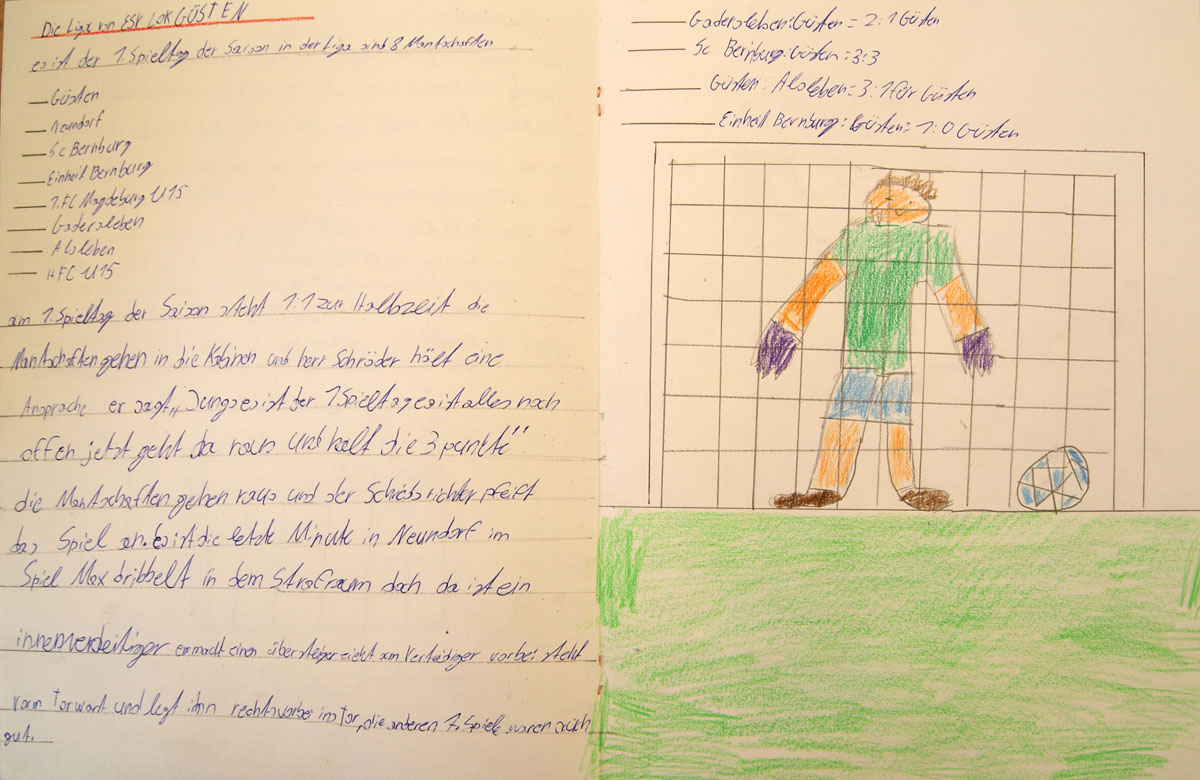 Die Liga von ESV LOK GÜSTEN
es ist der 1. Spieltag der Saison in der Liga sind 8 Mantschaften
Güsten
Neundorf
Sc Bernburg
Einheit Bernburg
1.FC Magdeburg U15
Gadersleben
Alsleben
HFC U15
am 1. Spieltag der Saison steht 1:1 zur Halbzeit die
Mantschaften gehen in die Kabinen und herr Schröder hält eine
Ansprache er sagt „Jungs es ist der 1 Spieltag es ist alles noch
offen jetzt geht da raus und holt die 3 punkte“
die Mantschaften gehen raus und der Schidsrichter pfeift
das Spiel an. es ist die letzte Minute in Neundorf im
Spiel Max dribbelt in dem Strafraum doch da ist ein
innenverteitiger er macht einen übersteiger zieht am Verteidiger vorbei steht
vorm Torwart und legt ihn rechts vorbei ins tor, die anderen 7. Spiele waren auch
gut.
Gadersleben:Güsten = 2:1 Güsten
Sc Bernburg:Güsten = 3:3
Güsten : Alsleben = 3:1 für Güsten
Einheit Bernburg : Güsten = 1:0 Güsten